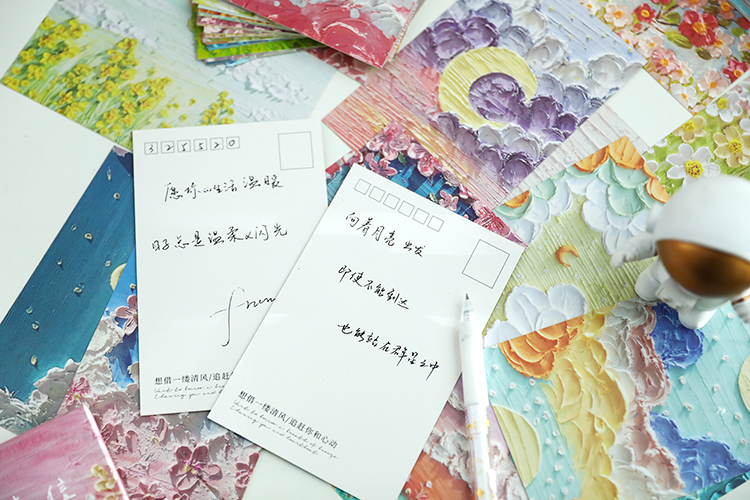 325520
愿你的生活温暖
日子总是温柔又闪光
from
想借一缕清风/追赶你
向着月亮出发
即使不能到达
也能站在群星之中
想借一缕清风/追赶你和心动